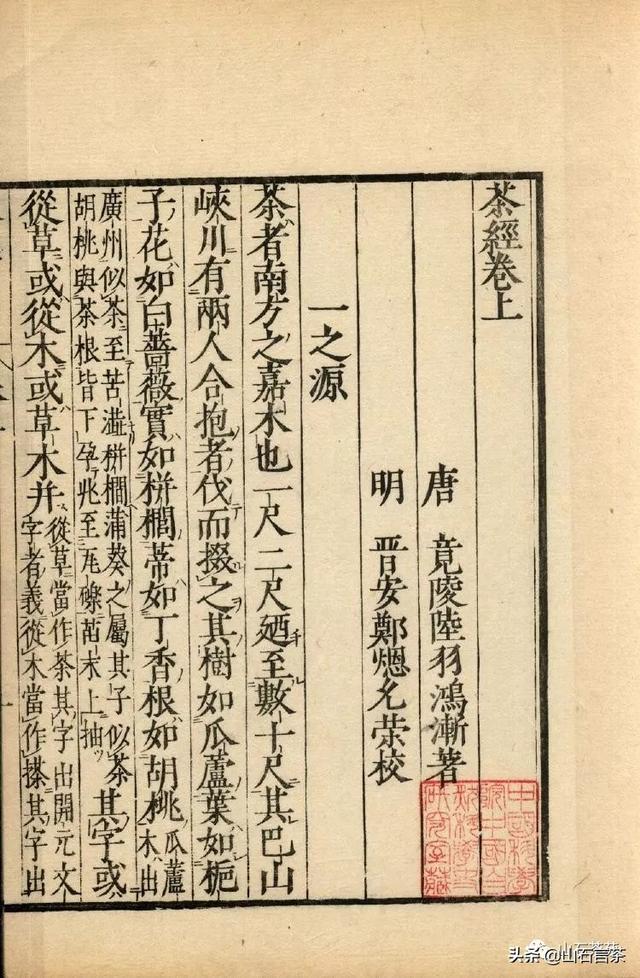 茶經卷上
唐 竟陵陸羽鴻漸著
明 晋安鄭熜允榮校
一之源
茶者南方之嘉木也一尺二尺廼至數十尺其巴山
峽川有兩人合抱者伐而掇之其樹如瓜蘆葉如梔
子花如白薔薇實如栟櫚蒂如丁香根如胡桃
瓜蘆
木出
廣州似茶至苦澁栟櫚蒲葵之屬其子似茶
胡桃與茶根皆下孕兆至瓦礫苗木上抽
其字或
從草或從木或草木并
從草當作茶其字出開元文
字者義從木當作搽其字出
中國科學
院中國自
然科學史
研究室藏
头条@山石言茶